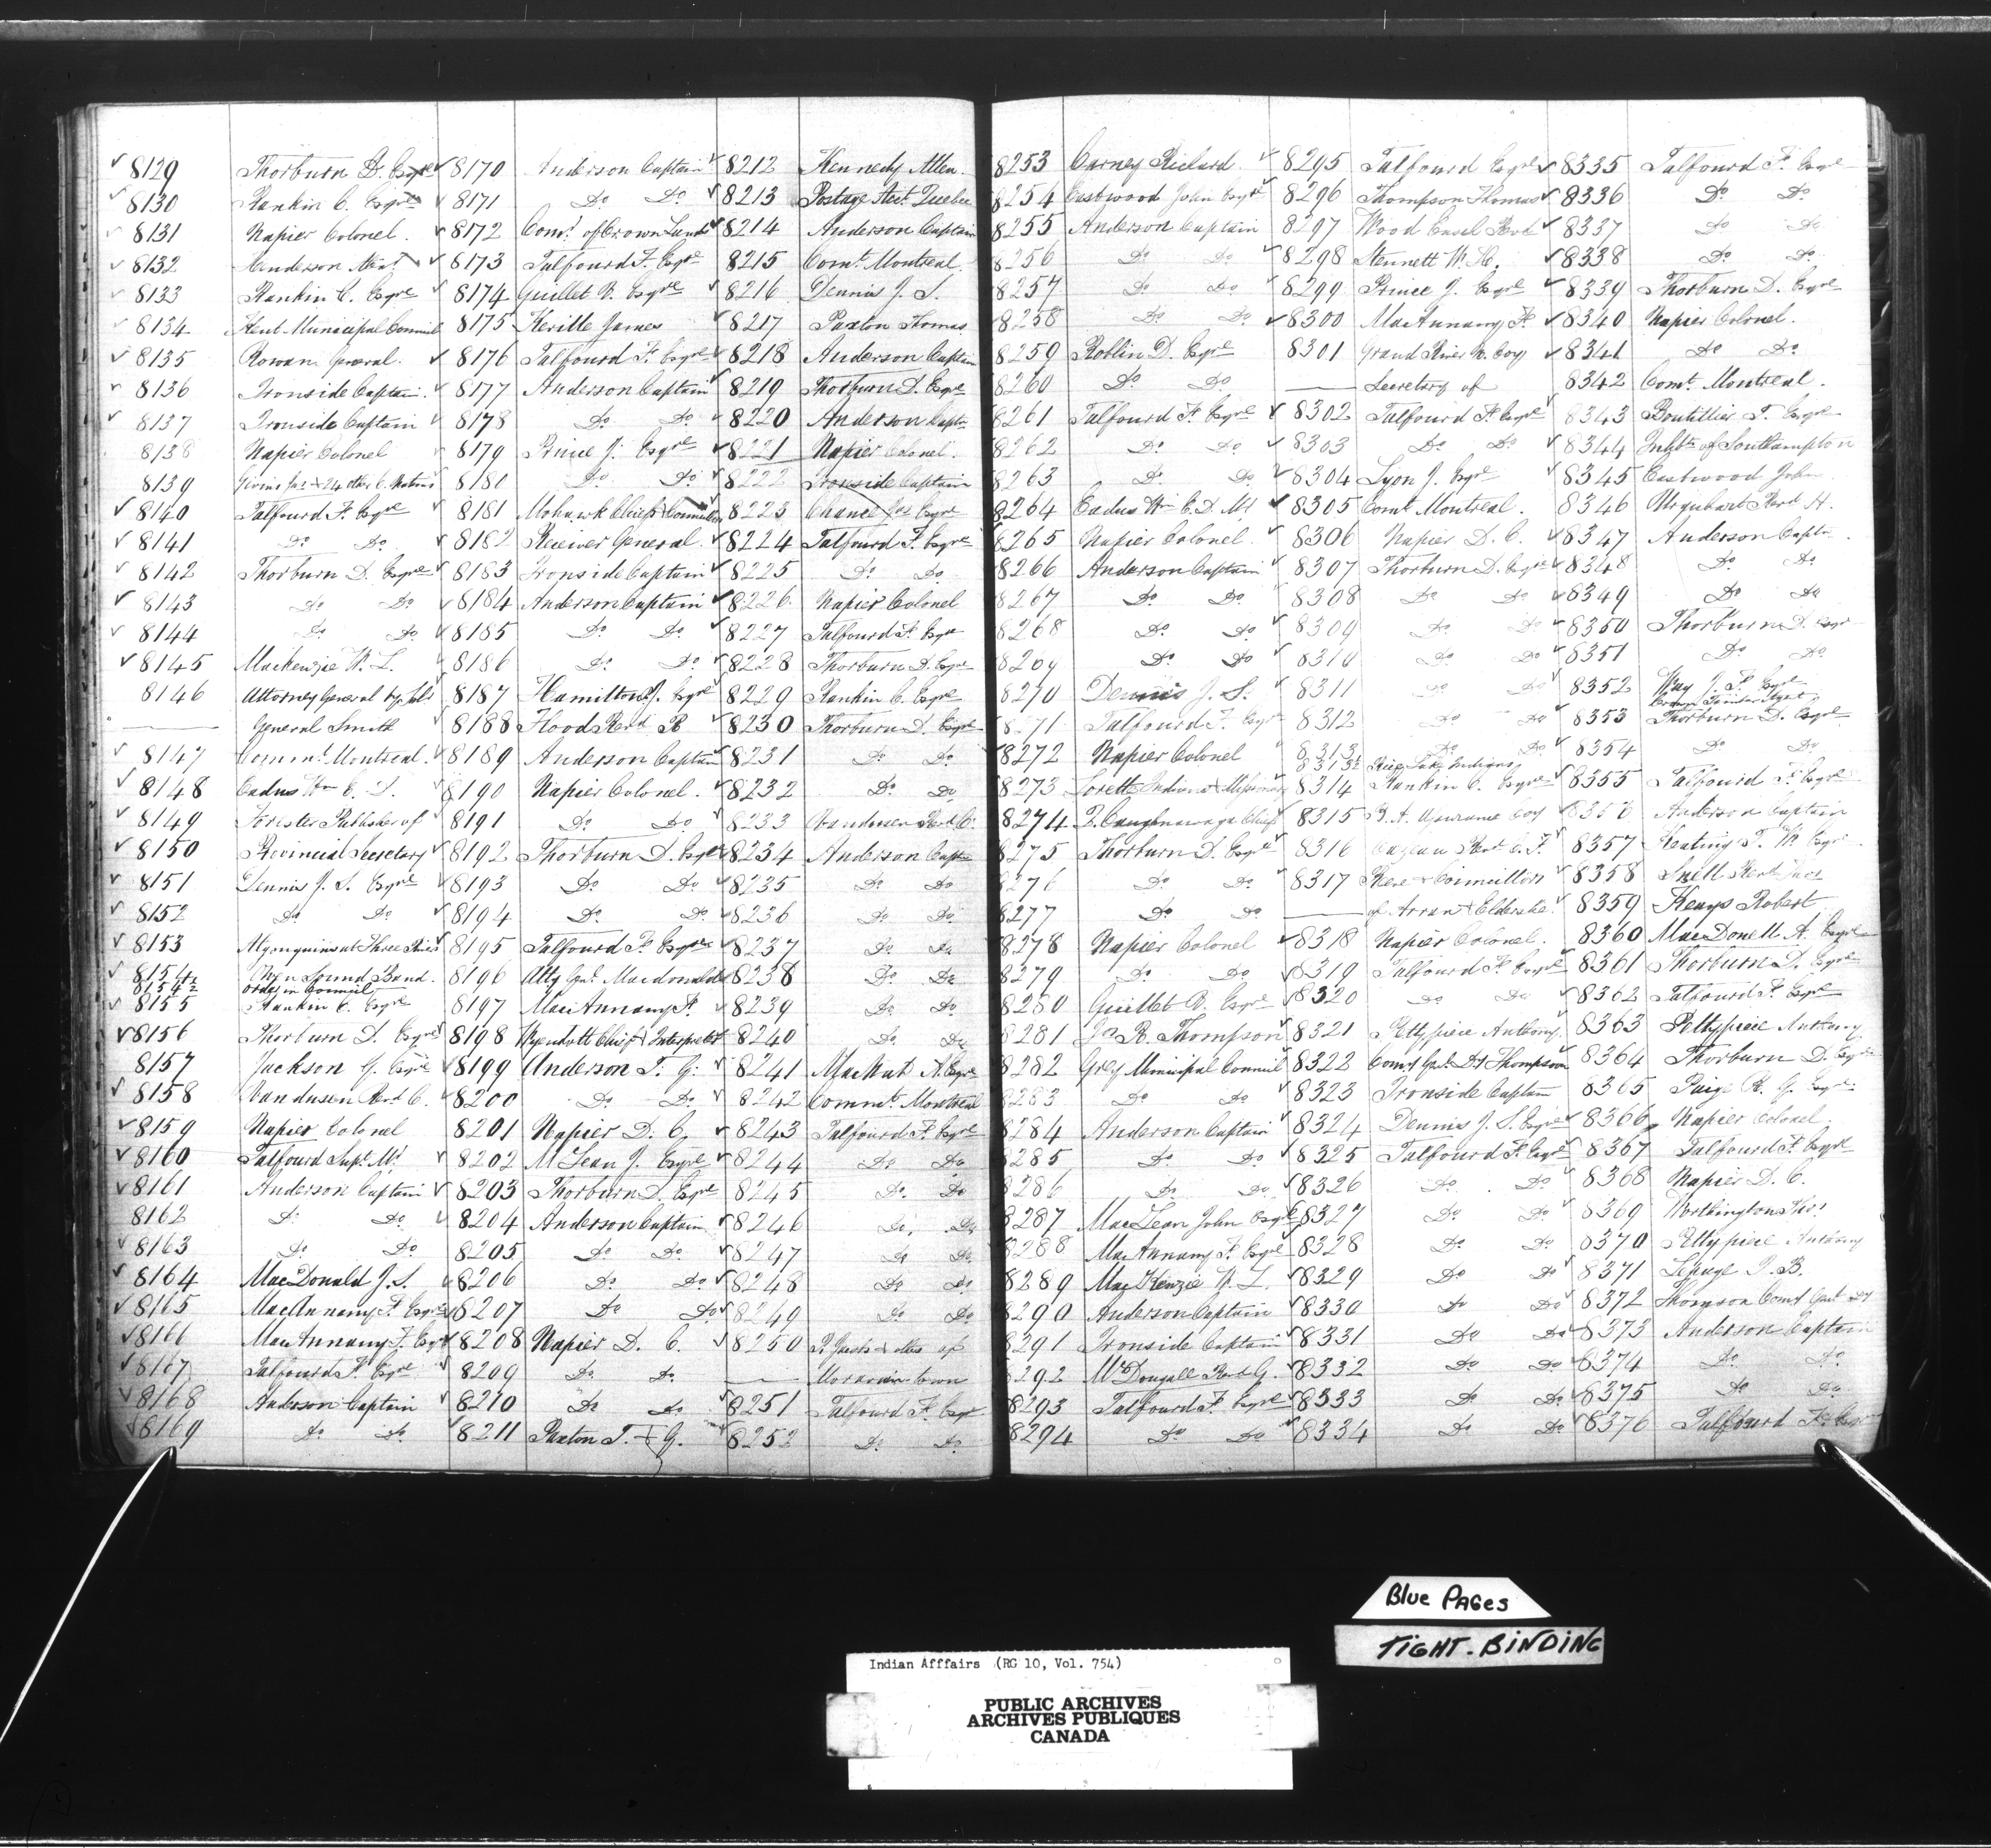 8129 Thorburn D. Esqre
8130 Rankin C. Esqre
8131 Napier Colonel.
8132 Anderson
8133 Rankin C. Esqre
8134 Kent Municipal Council
8135 Rowan
8136 Ironside Captain.
8137 Ironside Captain
8138 Napier Colonel
8139 Givins & 24 other
8140 Talfourd F. Esqre
8141 Do Do
8142 Thorburn D. Esqre
8143 Do Do
8144 Do Do
8145 Mackenzie W. L.
8146 Attorney General
General Smith
8147 Commt. Montreal.
8148 Eadus Wm C. D.
8149 Forester Publisher of
8150 Provincial Secretary
8151 Dennis J. S. Esqre
8152 Do Do
8153 Algonquins at Three Rivers
8154 Owen Sound Band.
8154½ Order in Council
8155 Rankin C. Esqre
8156 Thorburn D. Esqre
8157 Jackson G. Esqre
8158 Vandusen Revd C.
8159 Napier Colonel
8160 Talfourd Supt.
8161 Anderson Captain
8162 Do Do
8163 Do Do
8164 MacDonald J. S.
8165 MacAnnany F. Esqre
8166 MacAnnany F. Esqre
8167 Talfourd F. Esqre
8168 Anderson Captain
8169 Do Do
8170 Anderson Captain
8171 Do Do
8172 Comr. of Crown Lands
8173 Talfourd F. Esqre
8174 Guillet P. Esqre
8175 Keville James
8176 Talfourd F. Esqre
8177 Anderson Captain
8178 Do Do
8179 Prince J. Esqre
8180 Do Do
8181 Mohawk Chiefs Councillors
8182 Receiver General.
8183 Ironside Captain
8184 Anderson Captain
8185 Do Do
8186 Do Do
8187 Hamilton J. Esqre
8188 Flood Revd R
8189 Anderson Captain
8190 Napier Colonel.
8191 Do Do
8192 Thorburn D. Esqre
8193 Do Do
8194 Do Do
8195 Talfourd F. Esqre
8196 Atty Genl. Macdonald
8197 MacAnnany F.
8198 Wyandott Chief & Interpreter
8199 Anderson T. G.
8200 Do Do
8201 Napier D. C.
8202 McLean J. Esqre
8203 Thorburn D. Esqre
8204 Anderson Captain
8205 Do Do
8206 Do Do
8207 Do Do
8208 Napier D. C.
8209 Do Do
8210 Do Do
8211 Paxton T. & G.
8212 Kennedy Allen.
8213 Postage Act. Quebec
8214 Anderson Captain
8215 Comt. Montreal.
8216 Dennis J. S.
8217 Paxton Thomas
8218 Anderson Captain
8219 Thorburn D. Esqre
8220 Anderson Captn
8221 Napier Colonel.
8222 Ironside Captain
8223 Chance Jas Esqre
8224 Talfourd F. Esqre
8225 Do Do
8226 Napier Colonel
8227 Talfourd F. Esqre
8228 Thorburn D. Esqre
8229 Rankin C. Esqre
8230 Thorburn D. Esqre
8231 Do Do
8232 Do Do
8233 Vandusen Revd C.
8234 Anderson Captn
8235 Do Do
8236 Do Do
8237 Do Do
8238 Do Do
8239 Do Do
8240 Do Do
8241 MacNab A. Esqre
8242 Commt. Montreal
8243 Talfourd F. Esqre
8244 Do Do
8245 Do Do
8246 Do Do
8247 Do Do
8248 Do Do
8249 Do Do
8250 others of
Moravian town
8251 Talfourd F. Esqre
8252 Do Do
8253 Carney Richard
8254 Eastwood John Esqre
8255 Anderson Captain
8256 Do Do
8257 Do Do
8258 Do Do
8259 Roblin D. Esqre
8260 Do Do
8261 Talfourd F. Esqre
8262 Do Do
8263 Do Do
8264 Eadus Wm C. D.
8265 Napier Colonel.
8266 Anderson Captain
8267 Do Do
8268 Do Do
8269 Do Do
8270 Dennis J. S.
8271 Talfourd F. Esqre
8272 Napier Colonel
8273 Lorette Indians & Missionary
8274 Caughnawaga Chief
8275 Thorburn D. Esqre
8276 Do Do
8277 Do Do
8278 Napier Colonel
8279 Do Do
8280 Guillet P. Esqre
8281 Jas R. Thompson
8282 Grey Municipal Council
8283 Do Do
8284 Anderson Captain
8285 Do Do
8286 Do Do
8287 MacLean John Esqre
8288 MacAnnany F. Esqre
8289 MacKenzie W. L.
8290 Anderson Captain
8291 Ironside Captain
8292 McDougall Revd G.
8293 Talfourd F. Esqre
8294 Do Do
8295 Talfourd Esqre
8296 Thompson Thomas
8297 Wood
8298 Stennett W. H.
8299 Prince J. Esqre
8300 MacAnnany F.
8301 Grand River N. Coy
Secretary of
8302 Talfourd F. Esqre
8303 Do Do
8304 Lyon J. Esqre
8305 Comt. Montreal.
8306 Napier D. C.
8307 Thorburn D. Esqre
8308 Do Do
8309 Do Do
8310 Do Do
8311 Do Do
8312 Do Do
8313 Do Do
8313½ Rice Lake Indians
8314 Rankin C. Esqre
8315 B. A. Assurance Coy
8316 Cazeau Revd C. F.
8317 Reeve & Councillors
of Arran & Elderslie
8318 Napier Colonel.
8319 Talfourd F. Esqre
8320 Do Do
8321 Pettypiece Anthony
8322 Thompson
8323 Ironside Captain
8324 Dennis J. S. Esqre
8325 Talfourd F. Esqre
8326 Do Do
8327 Do Do
8328 Do Do
8329 Do Do
8330 Do Do
8331 Do Do
8332 Do Do
8333 Do Do
8334 Do Do
8335 Talfourd F. Esqre
8336 Do Do
8337 Do Do
8338 Do Do
8339 Thorburn D. Esqre
8340 Napier Colonel.
8341 Do Do
8342 Comt. Montreal.
8343 Boutillier T. Esqre
8344 Inhbts of Southampton
8345 Eastwood John
8346 Urquhart Revd H.
8347 Anderson Captn.
8348 Do Do
8349 Do Do
8350 Thorburn D. Esqr
8351 Do Do
8352 Way J. F. Esqre
Crown Timber Agent
8353 Thorburn D. Esqre
8354 Do Do
8355 Talfourd F. Esqre
8356 Anderson Captain
8357 Keating J. W. Esqr
8358 Snell
8359 Keays Robert
8360 MacDonell A. Esqre
8361 Thorburn D. Esqre
8362 Talfourd F. Esqre
8363 Pettypiece Anthony
8364 Thorburn D. Esqre
8365 Paige R. G. Esqre
8366 Napier Colonel.
8367 Talfourd F. Esqre
8368 Napier D. C.
8369 Worthington Thos
8370 Pettypiece Anthony
8371 Lepage P. B.
8372 Thompson
8373 Anderson Captain
8374 Do Do
8375 Do Do
8376 Talfourd F. Esqr
Blue PAGes
TiGHT-BiNDiNG
Indian Afffairs (RG 10, Vol. 754)
PUBLIC ARCHIVES
ARCHIVES PUBLIQUES
CANADA